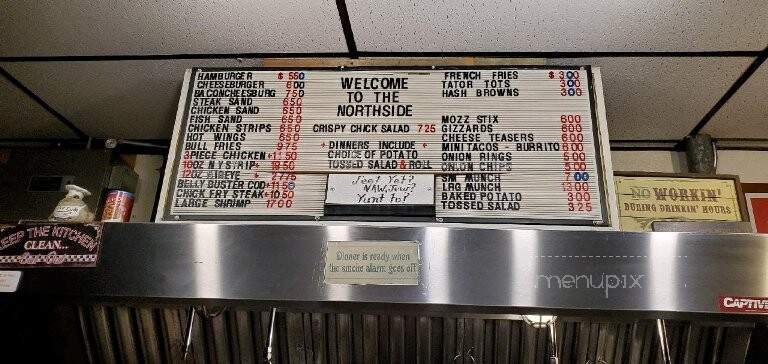 HAMBURGER $ 550
CHEESEBURGER 600
BACONCHEESBURG 750
STEAK SAND 650
CHICKEN SAND 650
FISH SAND 650
CHICKEN STRIPS 650
HOT WINGS 650
BULL FRIES 975
3PIECE CHICKEN+11 50
10OZ N Y STRIP+ 19 50
12OZ RIBEYE + 2775
BELLY BUSTER COD+11 50
CHICK FRY STEAK+10 50
LARGE SHRIMP 17 00
WELCOME
TO THE
NORTHSIDE
CRISPY CHICK SALAD 7 25
+ DINNERS INCLUDE +
CHOICE OF POTATO
TOSSED SALAD & ROLL
Jeet Yet?
NAW, Jew?
Yunt to?
FRENCH FRIES $ 300
TATOR TOTS 300
HASH BROWNS 300
MOZZ STIX 600
GIZZARDS 600
CHEESE TEASERS 600
MINI TACOS - BURRITO 600
ONION RINGS 500
ONION CHIPS 500
SM MUNCH 7 00
LRG MUNCH 13 00
BAKED POTATO 300
TOSSED SALAD 3 25
NO WORKIN'
DURING DRINKIN' HOURS
KEEP THE KITCHEN
CLEAN...
Dinner is ready when
the smoke alarm goes off
menupix
CAPTIVE